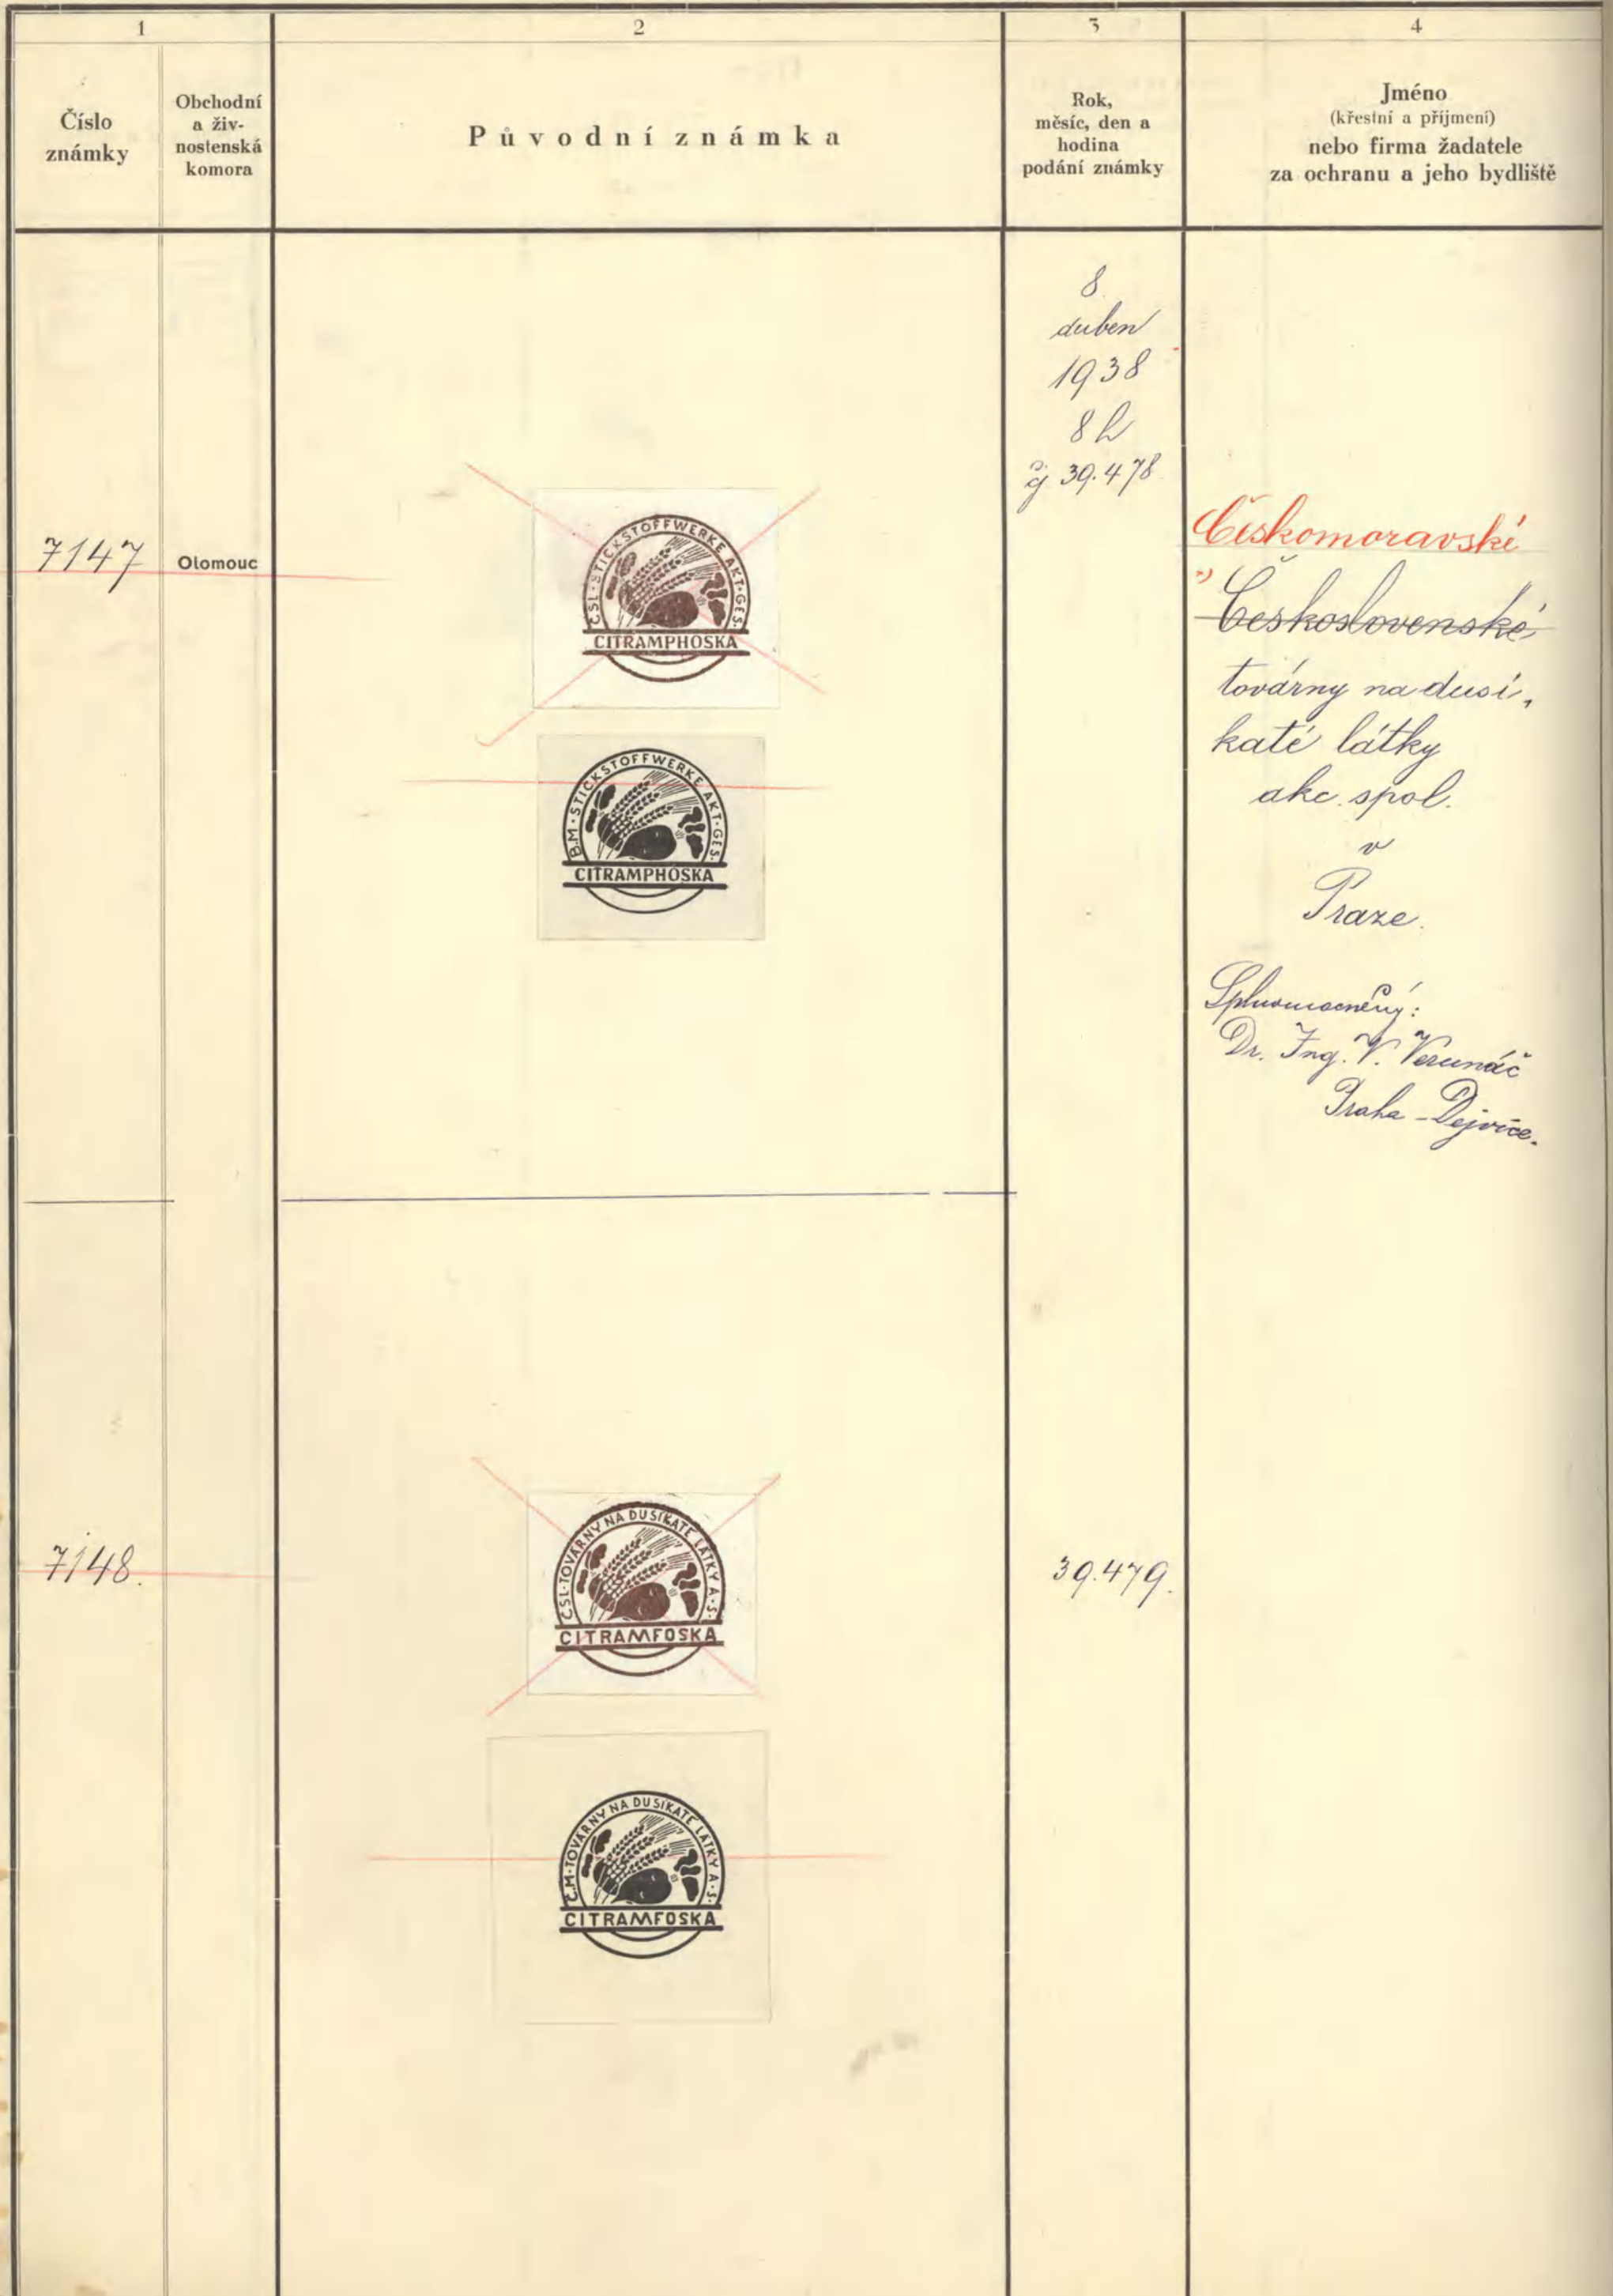 1
2
3
4
Číslo
známky
Obchodní
a živ-
nostenská
komora
Původní známka
Rok,
měsíc, den a
hodina
podání známky
Jméno
(křestní a příjmení)
nebo firma žadatele
za ochranu a jeho bydliště
8
duben
1938
8 h
čj 39.478
7147
Olomouc
ČSL·STICKSTOFFWERKE AKT·GES.
CITRAMPHOSKA
B.M·STICKSTOFFWERKE AKT·GES.
CITRAMPHOSKA
Českomoravské
Československé
továrny na dusí-
katé látky
akc. spol.
v
Praze.
Splnomocněný:
Dr. Ing. V. Verunáč
Praha-Dejvice.
7148.
ČSL·TOVÁRNY NA DUSÍKATÉ LÁTKY A·S·
CITRAMFOSKA
39.479.
Č.M·TOVÁRNY NA DUSÍKATÉ LÁTKY A·S·
CITRAMFOSKA